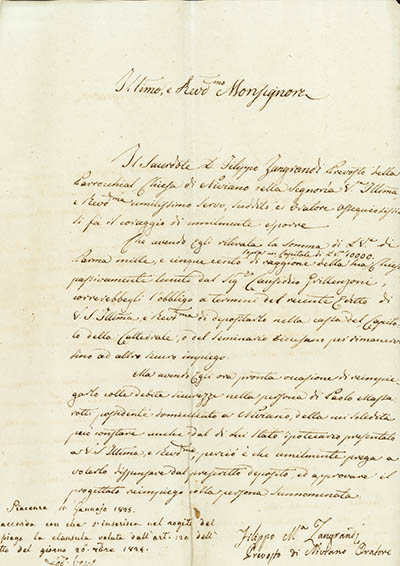 Ill.mo, e Rev.d mo Monsignore
Il Sacerdote D. Filippo Zangrandi Prevosto della
Parrocchial Chiesa di Niviano della Signoria V.a Ill.ma
e Rev.ma umilissimo Servo, suddito ed Oratore ossequiosiss
si fà il coraggio di umilmente esporre
Che avendo Egli ritirata la Somma di L. V.e di
sopra un Capitale di L. 10000.
Parma mille, e cinque cento di raggione della sua Chiesa
passivamente tenuto dal Sig.r Causidico
correrebbegli l'obbligo a termini del recente Editto di
V. S. Ill.ma, e Rev.ma di depositarlo nella cassa del Capito
lo della Cattedrale, o del Seminario Diocesano per rimanervi
sino ad altro sicuro impiego.
Ma avendo Egli ora pronta occasione di reimpie
garlo colle debite sicurezze nella persona di Paolo Masta
rotti possidente domiciliato a Niviano, della cui solidità
può constare anche dal di lui stato ipotecario presentato
a V. S. Ill.ma, e Rev.ma, perciò è che umilmente prega a
volerlo dispensare dal prescritto deposito, ed approvare il
progettato reimpiego colla persona sunnominata
Piacenza Gennajo
accorda con che s'inserisca nel rogito del
piego la clausula voluta dall'art. dell'
tto del giorno
Filippo M.a Zangrandi
Prevosto di Niviano Oratore